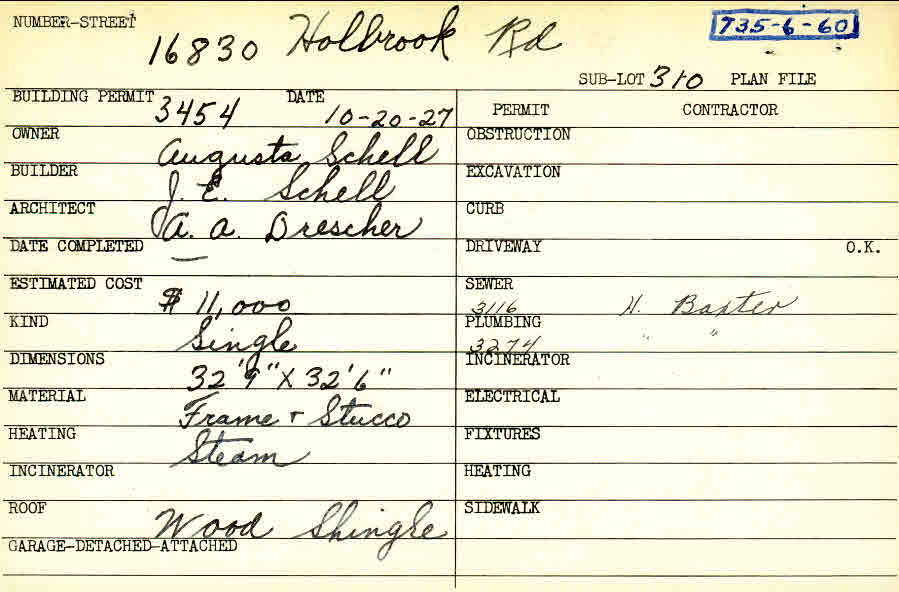 NUMBER-STREET 16830 Holbrook Rd 735-6-60
SUB-LOT 310 PLAN FILE
BUILDING PERMIT 3454 DATE 10-20-27
PERMIT CONTRACTOR
OWNER Augusta Schell
OBSTRUCTION
BUILDER J. E. Schell
EXCAVATION
ARCHITECT A. A. Drescher
CURB
DATE COMPLETED —
DRIVEWAY O.K.
ESTIMATED COST $ 11,000
SEWER 3116 H. Baxter
KIND Single
PLUMBING 3274 " "
DIMENSIONS 32'9" X 32'6"
INCINERATOR
MATERIAL Frame + Stucco
ELECTRICAL
HEATING Steam
FIXTURES
INCINERATOR
HEATING
ROOF Wood Shingle
SIDEWALK
GARAGE-DETACHED-ATTACHED